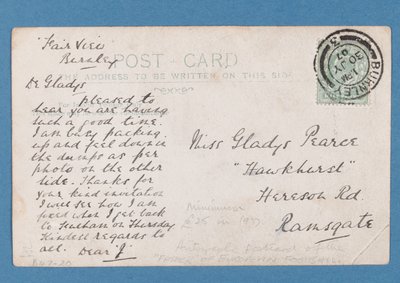 "Fair View
Burnley
POST CARD
THE ADDRESS TO BE WRITTEN ON THIS SIDE
Dr Gladys
Pleased to
hear you are having
such a good time.
I am busy packing
up and feel down in
the dumps as per
photo on the other
side. Thanks for
your kind invitation
I will see how I am
fixed when I get back
to Fulham on Thursday
Kindest regards to
all. Dear "J"
BURNLEY
1 PM
30 JY
07
3
Miss Gladys Pearce
"Hawkhurst"
Hereson Rd.
Ramsgate
Minimum
£35 in 1997
of the
of